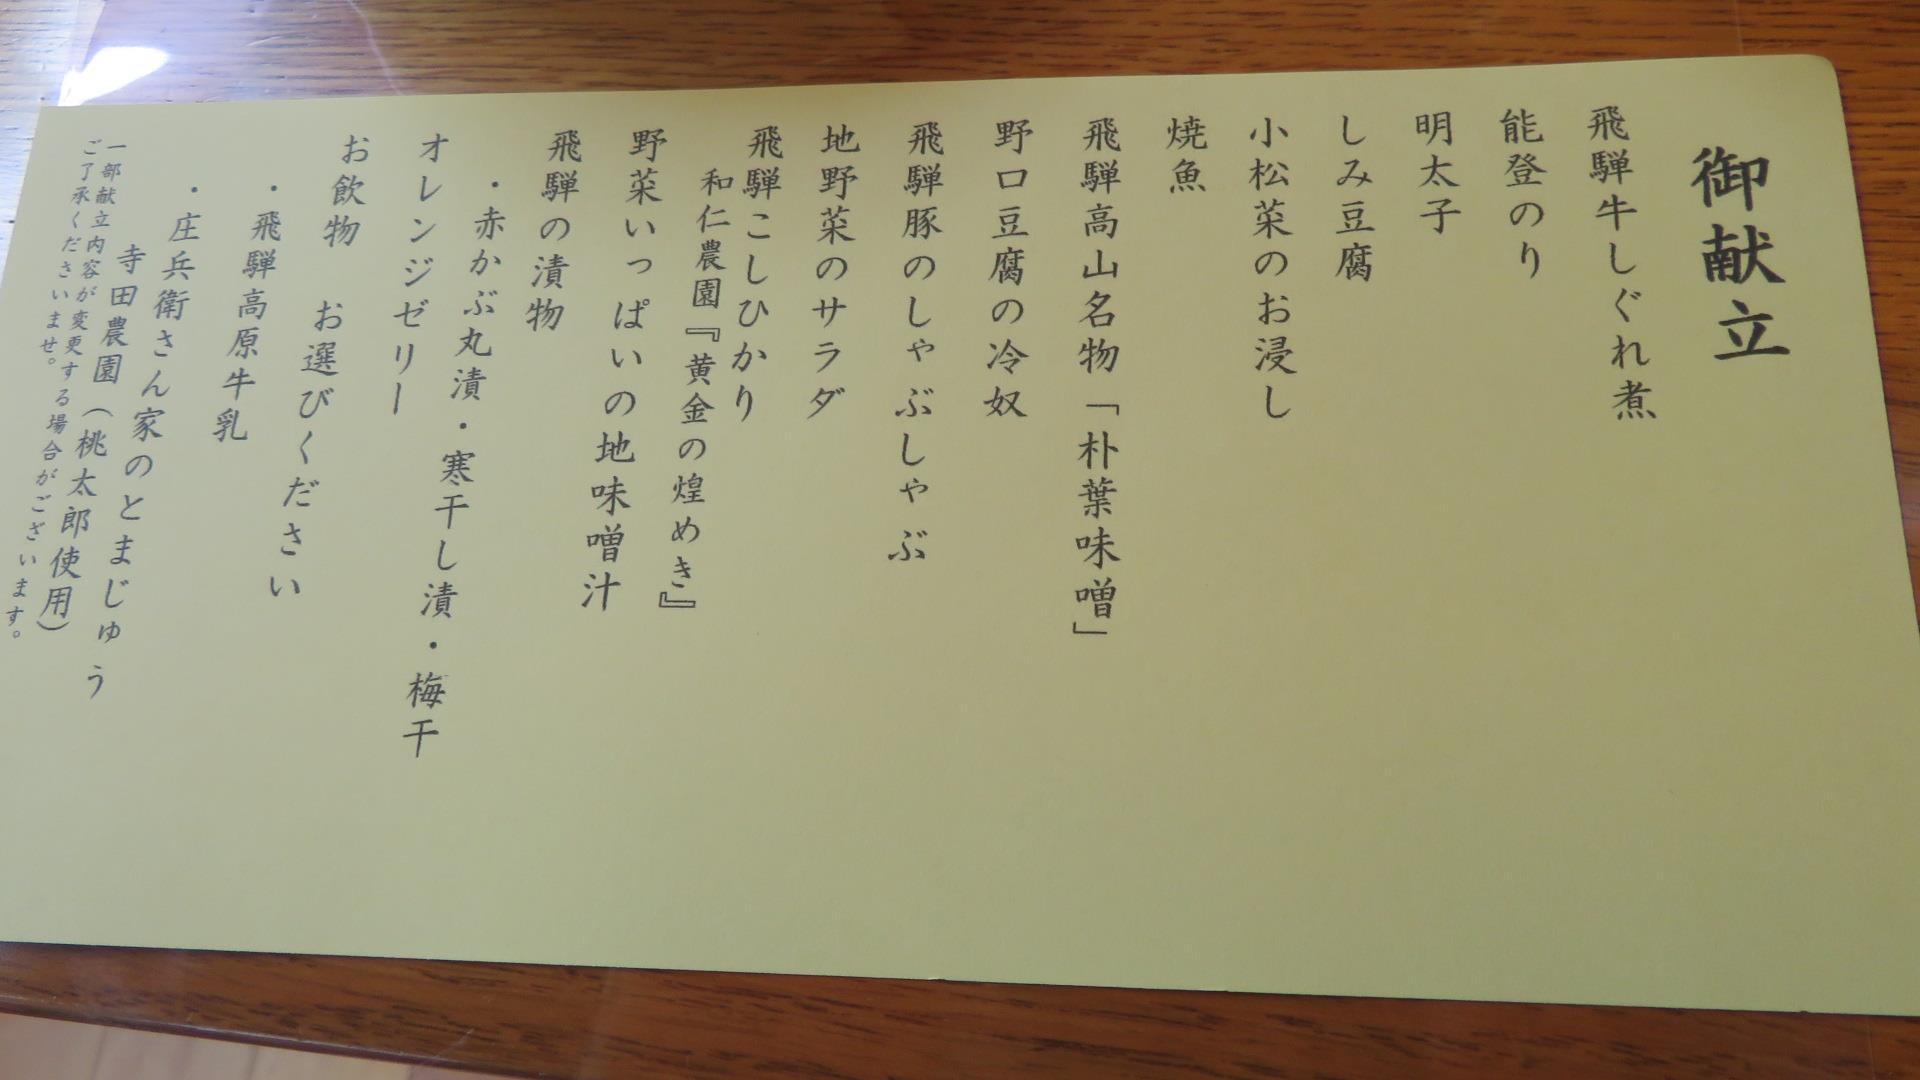 御献立
飛騨牛しぐれ煮
能登のり
明太子
しみ豆腐
小松菜のお浸し
焼魚
飛騨高山名物「朴葉味噌」
野口豆腐の冷奴
飛騨豚のしゃぶしゃぶ
地野菜のサラダ
飛騨こしひかり
和仁農園『黄金の煌めき』
野菜いっぱいの地味噌汁
飛騨の漬物
・赤かぶ丸漬・寒干し漬・梅干
オレンジゼリー
お飲物　お選びください
・飛騨高原牛乳
・庄兵衛さん家のとまじゅう
寺田農園（桃太郎使用）
一部献立内容が変更する場合がございます。
ご了承くださいませ。